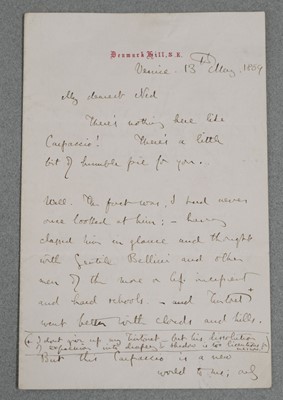 Denmark Hill, S.E.
Venice. 13th May, 1869
My dearest Ned
There's nothing here like
Carpaccio! There's a little
bit of humble pie for you.
Well. The fact was, I had never
once looked at him; – having
classed him in glance and thought
with Gentile Bellini and other
men of the more or less incipient
and hard schools – and Tintoret
went better with clouds and hills.
(* I don't give up my Tintoret but his dissolution
of expression into drapery & shadow is too licentious for
But this Carpaccio is a new
world to me; only